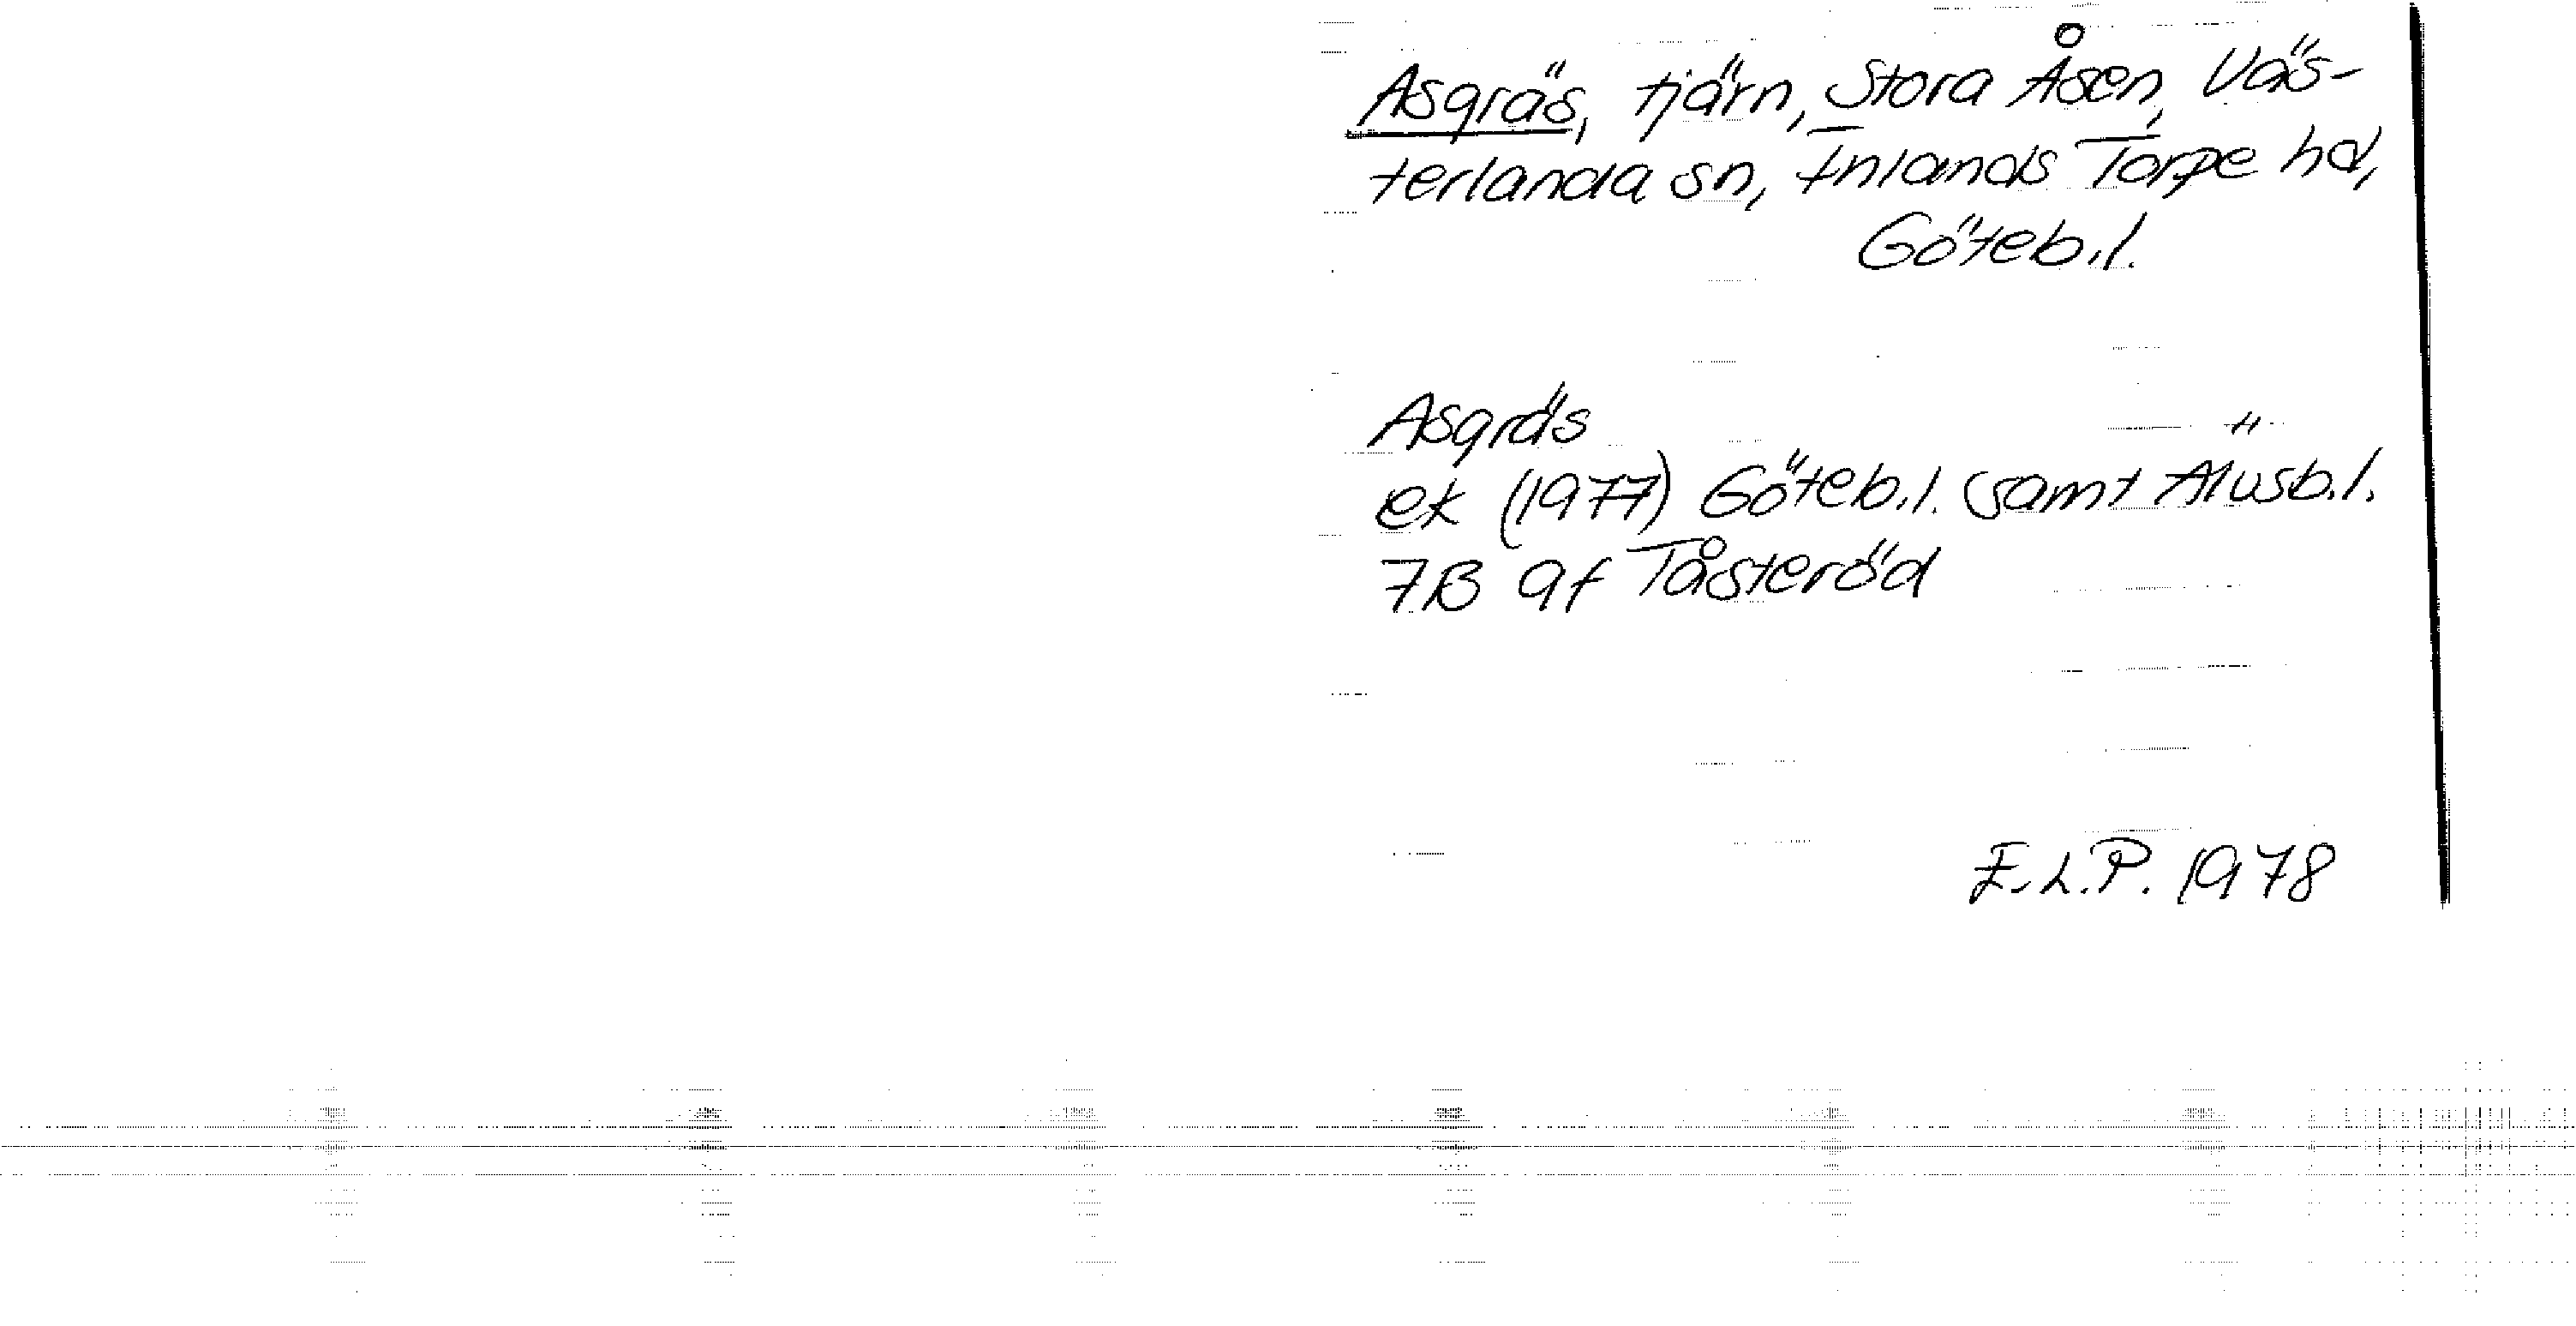 Asgräs, tjärn, Stora Åsen, Väs-
terlanda sn, Inlands Torpe hd,
Göteb.l.
Asgräs
ek (1977) Göteb.l. samt Älvsb.l.
7B 9f Tåsteröd
E.L.P. 1978